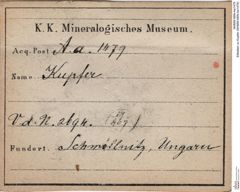 K. K. Mineralogisches Museum.
Acq. Post A. a. 1479
Name Kupfer
Fundort. Schmöllnitz, Ungarn